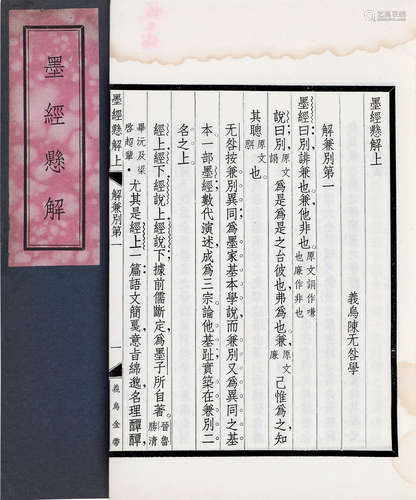 墨經懸解
墨經懸解上
義烏陳无咎學
解兼別第一
墨經曰別誹兼也兼他非也。原文誚作嗛也廉作非也
說曰別原文誚為是為是之台彼也弗為也兼原文廉己惟為之知
其聰原文也。
无咎按兼別異同為墨家基本學說而兼別又為異同之基
本一部墨經數代演述成為三宗論他基趾實築在兼別二
名之上。
經上經下經說上經說下據前儒斷定為墨子所自著。晉魯勝清
畢沅及梁啓超輩。尤其是經上一篇語文簡戛意旨綿邈名理譚譚,
墨經懸解上
解兼別第一
一
義烏金帶